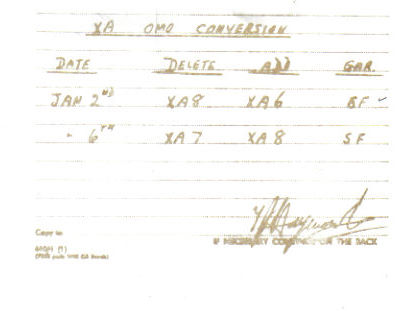 XA OMO CONVERSION
DATE DELETE ADD GAR.
JAN 2ND XA8 XA6 BF ✓
" 6TH XA7 XA8 SF
IF NECESSARY CONTINUE ON THE BACK
Copy to